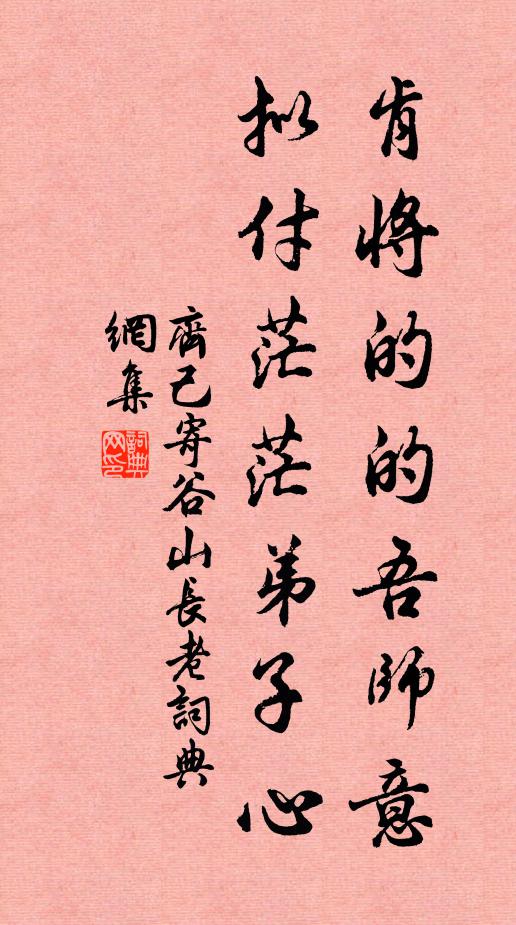 肯將的的吾師意
拟付茫茫弟子心
齊己寄谷山長老詞典
網集
詞典
网印